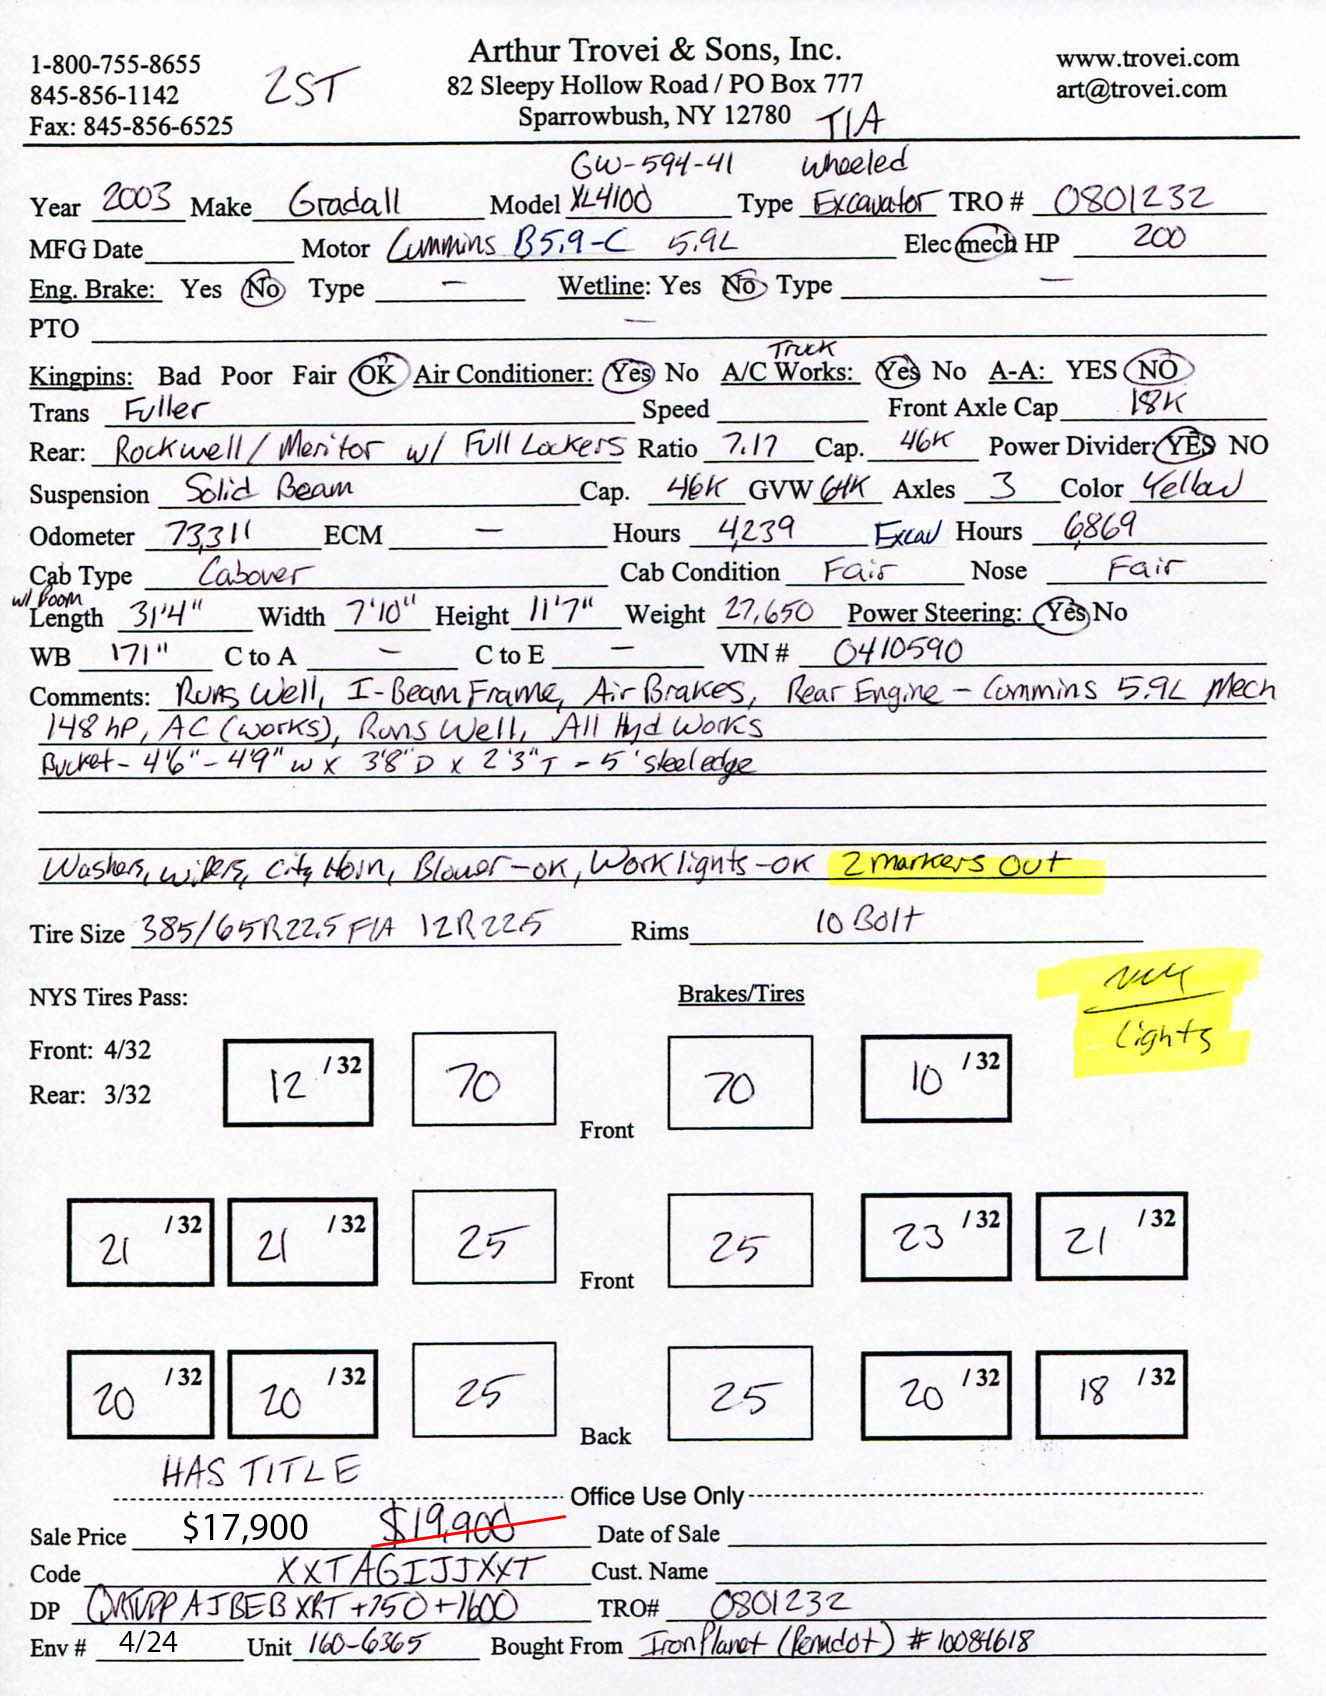 1-800-755-8655
845-856-1142
Fax: 845-856-6525
2ST
Arthur Trovei & Sons, Inc.
82 Sleepy Hollow Road / PO Box 777
Sparrowbush, NY 12780
www.trovei.com
art@trovei.com
T/A
GW-594-41 Wheeled
Year 2003 Make Gradall Model XL4100 Type Excavator TRO # 0801232
MFG Date Motor Cummins B5.9-C 5.9L Elec mech HP 200
Eng. Brake: Yes No Type - Wetline: Yes No Type -
PTO -
Truck
Kingpins: Bad Poor Fair OK Air Conditioner: Yes No A/C Works: Yes No A-A: YES NO
Trans Fuller Speed Front Axle Cap 18K
Rear: Rockwell/Meritor w/ Full Lockers Ratio 7.17 Cap. 46K Power Divider: YES NO
Suspension Solid Beam Cap. 46K GVW 64K Axles 3 Color Yellow
Odometer 73,311 ECM - Hours 4,239 Excav Hours 6,869
Cab Type Cabover Cab Condition Fair Nose Fair
w/ Boom
Length 31'4" Width 7'10" Height 11'7" Weight 27,650 Power Steering: Yes No
WB 171" C to A - C to E - VIN # 0410590
Comments: Runs Well, I-Beam Frame, Air Brakes, Rear Engine - Cummins 5.9L Mech
148 hP, AC (works), Runs Well, All Hyd Works
Bucket - 4'6" - 4'9" W x 3'8" D x 2'3" T - 5' steel edge
Washers, wipers, City Horn, Blower-OK, Work lights-OK 2 markers out
Tire Size 385/65R22.5 F/A 12R22.5 Rims 10 Bolt
NYS Tires Pass: Brakes/Tires
Lights
Front: 4/32
Rear: 3/32
12 /32 70 Front 70 10 /32
21 /32 21 /32 25 Front 25 23 /32 21 /32
20 /32 20 /32 25 Back 25 20 /32 18 /32
HAS TITLE
Office Use Only
Sale Price $17,900 $19,900 Date of Sale
Code XXTAGIJJXXT Cust. Name
DP AJBEBXRT +750 +1600 TRO# 0801232
Env # 4/24 Unit 160-6365 Bought From IronPlanet (Penndot) # 10084618